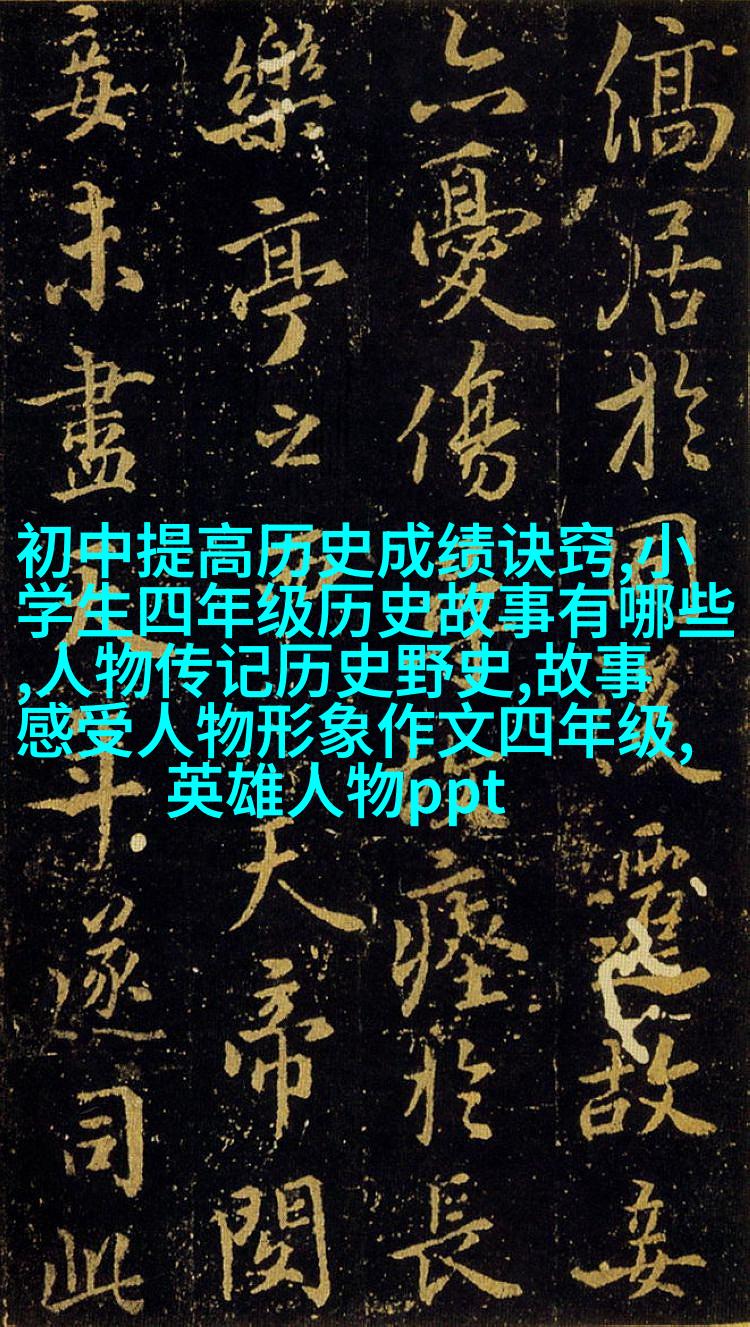 居於同還故妾
憂傷瘞於長
樂亭之西天帝閔
妾未盡天年遂司此
初中提高历史成绩诀窍,小
学生四年级历史故事有哪些
,人物传记历史野史,故事
感受人物形象作文四年级,
英雄人物ppt